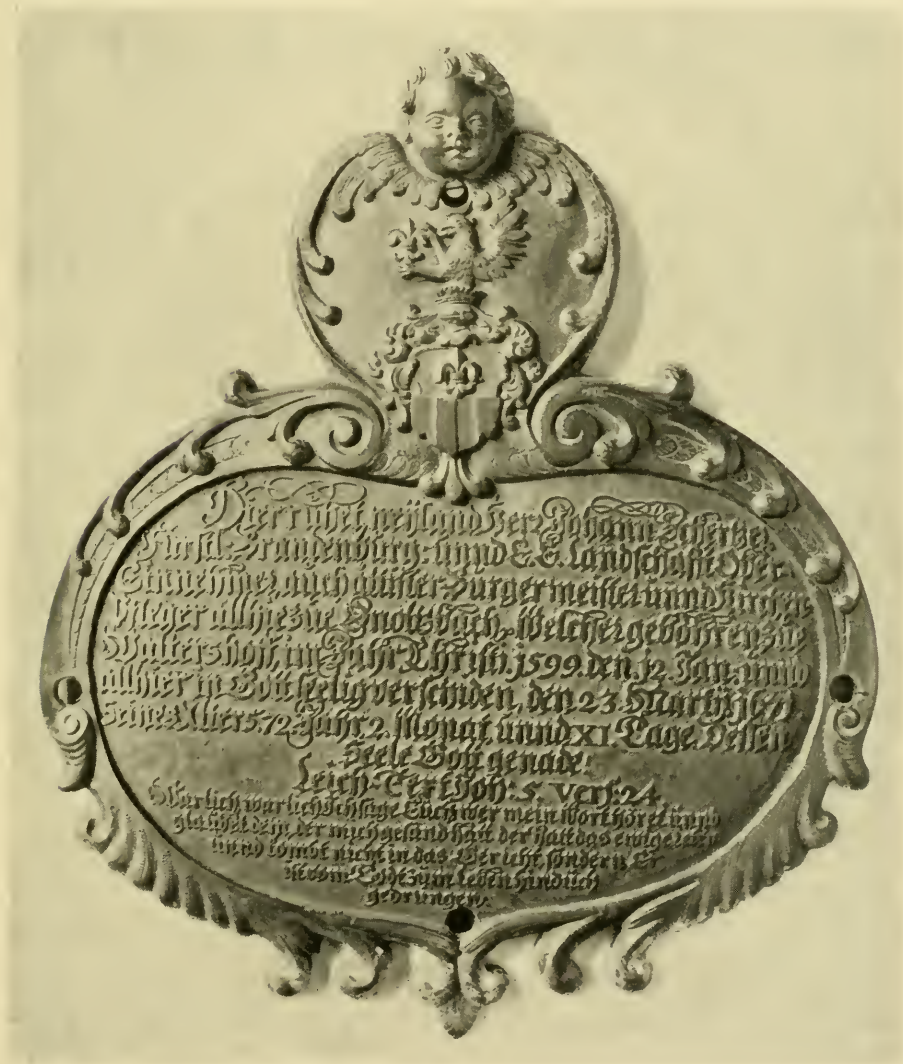 Hier ruhet weÿland Herr Johann Schertzer
Fürstl: Brandenburg: unnd E. E. Landschafft Ober-
Einnehmer, auch ältister Burgermeister unnd
Pfleger allhie zue Welcher gebohren zue
Waltershof, im Jahr Christi, 1599. den, 12. Jan: unnd
allhier in Gott seelig verscinden, den 23. Martÿ,
seines Alters 72. Jahr 2. Monat unnd XI. Tage. Dessen
Seele Gott genade.
Leich-Text Joh: 5. vers: 24
Warlich warlich Ich sage Euch wer mein Wort höret unnd
glaubet dem der mich gesand hatt der hatt das ewige leben
unnd kombt nicht in das Gericht, sondern Er
ist vom Todt zum leben hindůch
gedrungen.